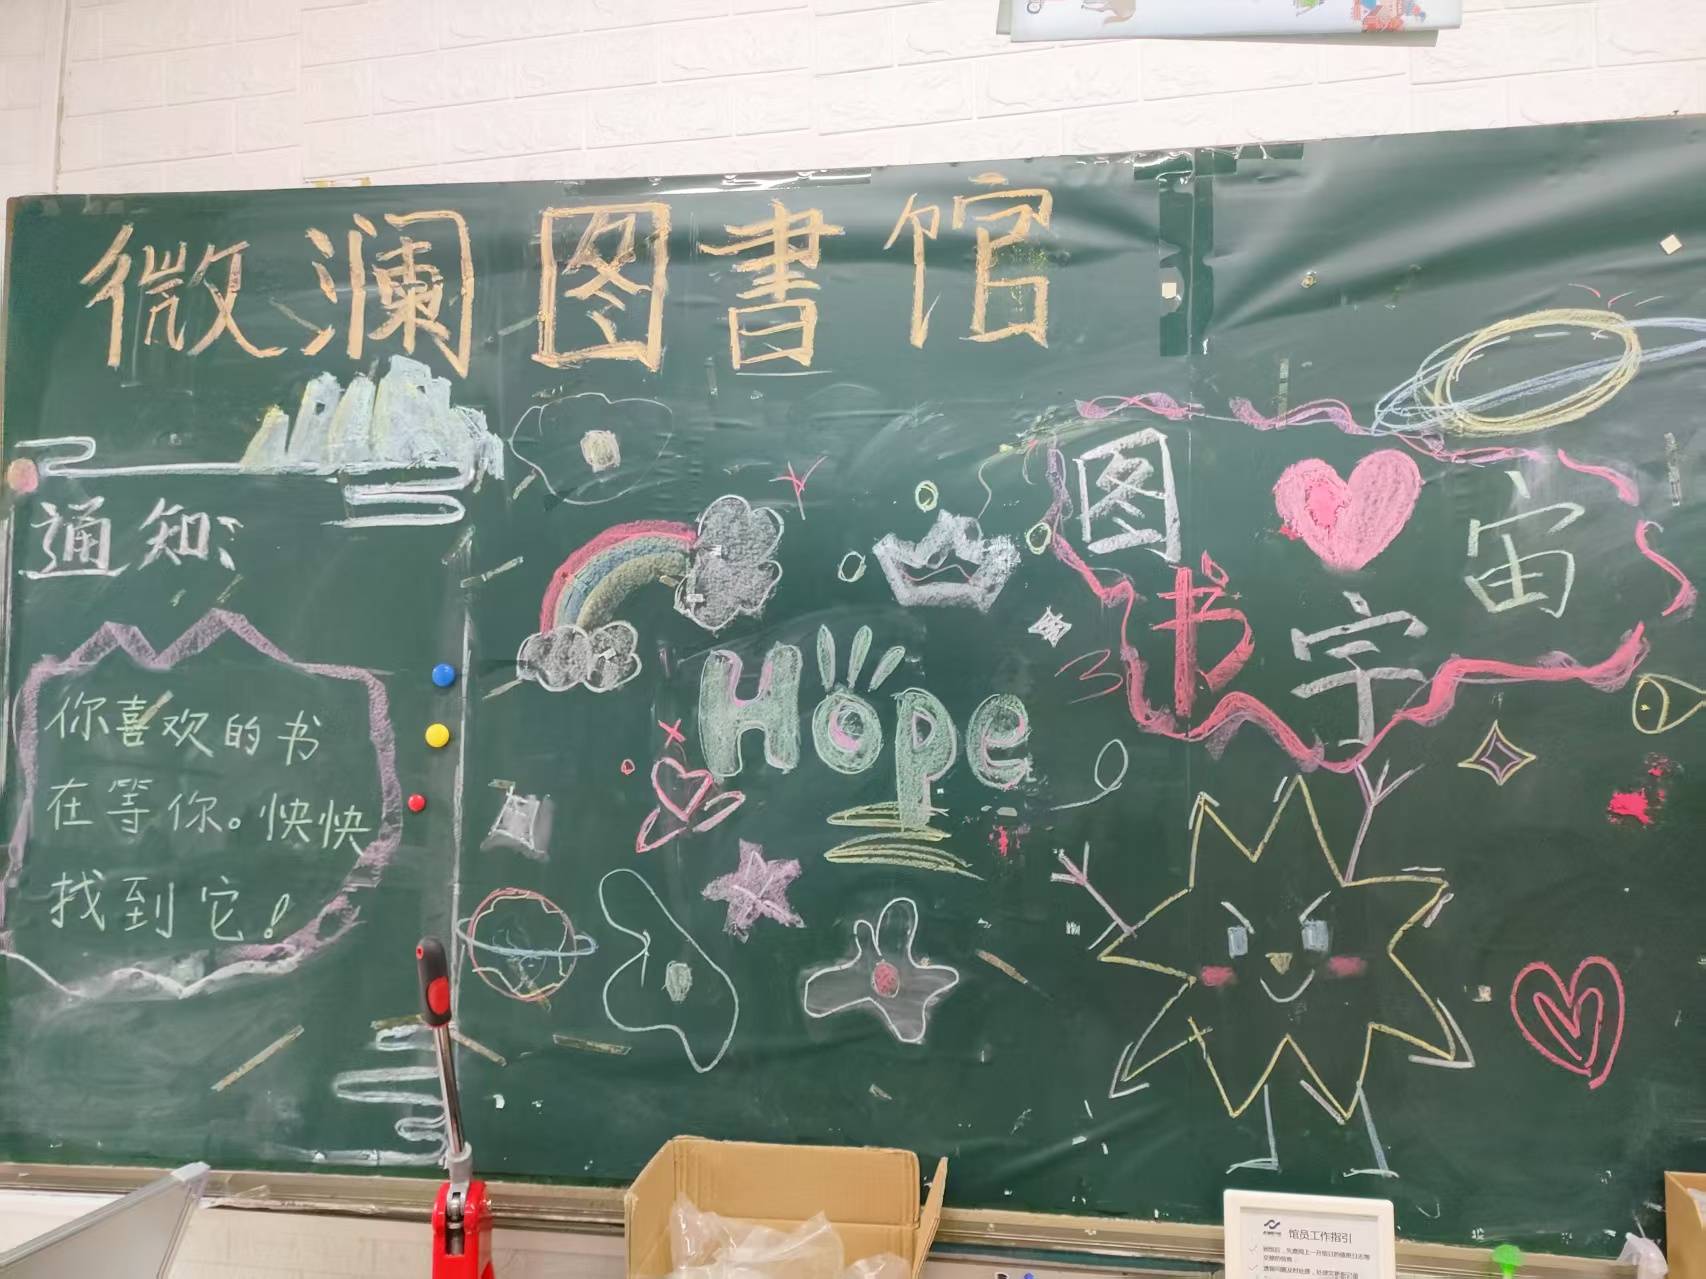 微澜图書馆
通知:
你喜欢的书
在等你。快快
找到它!
Hope
图书宇宙
馆员工作指引